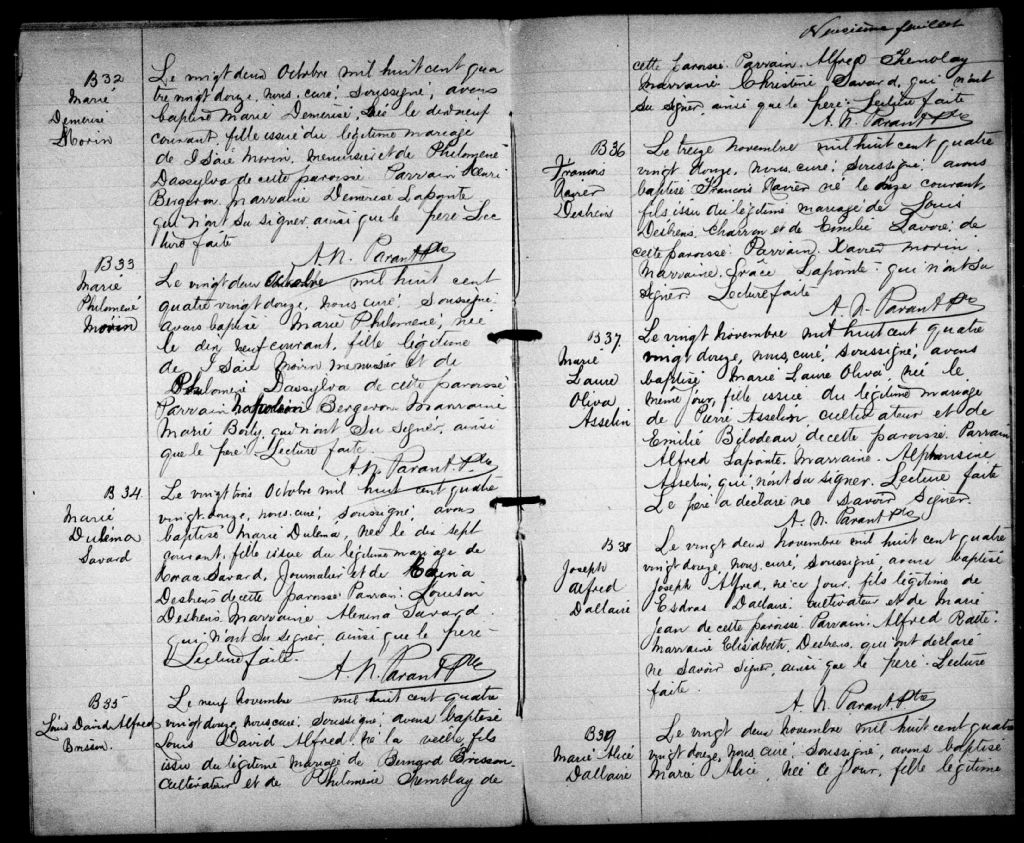 B32
Marie
Demerise
Morin
Le vingt deux Octobre mil huit cent qua
tre vingt douze, nous, curé, soussigné, avons
baptisé Marie Demerise née le dix neuf
courant, fille issue du légitime mariage
de Isaïe Morin, menuisier et de Philomène
Dassylva de cette paroisse Parrain Henri
Bergeron Marraine Demerise Lapointe
qui n'ont su signer ainsi que le père Lec
ture faite
A. N. Parant Ptre
B33
Marie
Philomène
Morin
Le vingt deux Octobre mil huit cent
quatre vingt douze, nous, curé, soussigné
avons baptisé Marie Philomène, née
le dix neuf courant, fille légitime
de Isaïe Morin menuisier et de
Philomène Dassylva de cette paroisse
Parrain Napoléon Bergeron Marraine
Marie Boily qui n'ont su signer, ainsi
que le père Lecture faite.
A. N. Parant Ptre
B 34
Marie
Dulema
Savard
Le vingt trois Octobre mil huit cent quatre
vingt douze, nous, curé, soussigné, avons
baptisé Marie Dulema, née le dix sept
courant, fille issue du légitime mariage de
Savard, Journalier et de
Deshens de cette paroisse Parrain: Louison
Deshens Marraine Alexina Savard
qui n'ont su signer ainsi que le père
Lecture faite.
A. N. Parant Ptre
B35
Louis David Alfred
Brisson.
Le neuf Novembre mil huit cent quatre
vingt douze, nous, curé, soussigné, avons baptisé
Louis David Alfred né la veille, fils
issu du légitime mariage de Bernard Brisson
cultivateur et de Philomène Tremblay de
Neuvième feuillet
cette paroisse. Parrain. Alfred Tremblay
Marraine Christine Savard, qui n'ont
su signer ainsi que le père. Lecture faite
A. N. Parant Ptre
B36
François
Xavier
Deshens
Le treize novembre mil huit cent quatre
vingt douze, nous, curé, soussigné avons
baptisé François Xavier né le onze courant,
fils issu du légitime mariage de Louis
Deshens. Charron et de Emilie Lavoie, de
cette paroisse. Parrain, Xavier Morin.
Marraine, Grâce Lapointe qui n'ont su
signer Lecture faite
A. N. Parant Ptre
B37
Marie
Laure
Oliva
Asselin
Le vingt novembre mil huit cent quatre
vingt douze, nous, curé, soussigné, avons
baptisé Marie Laure Oliva, née le
même jour, fille issue du légitime mariage
de Pierre Asselin, cultivateur et de
Emilie Bilodeau de cette paroisse. Parrain
Alfred Lapointe. Marraine. Alphonsine
Asselin, qui n'ont su signer. Lecture faite
Le père a déclaré ne savoir signer.
A. N. Parant Ptre
B38
Joseph
Alfred
Dallaire
Le vingt deux novembre mil huit cent quatre
vingt douze, nous, curé, soussigné, avons baptisé
Joseph Alfred, né ce jour, fils légitime de
Esdras Dallaire cultivateur et de Marie
Jean de cette paroisse. Parrain. Alfred Ratté.
Marraine Elisabeth Deshens, qui ont déclaré
ne savoir signer, ainsi que le père. Lecture
faite.
A. N. Parant Ptre
B39
Marie Alice
Dallaire
Le vingt deux novembre mil huit cent quatre
vingt douze, nous, curé, soussigné, avons baptisé
Marie Alice, née ce jour, fille légitime